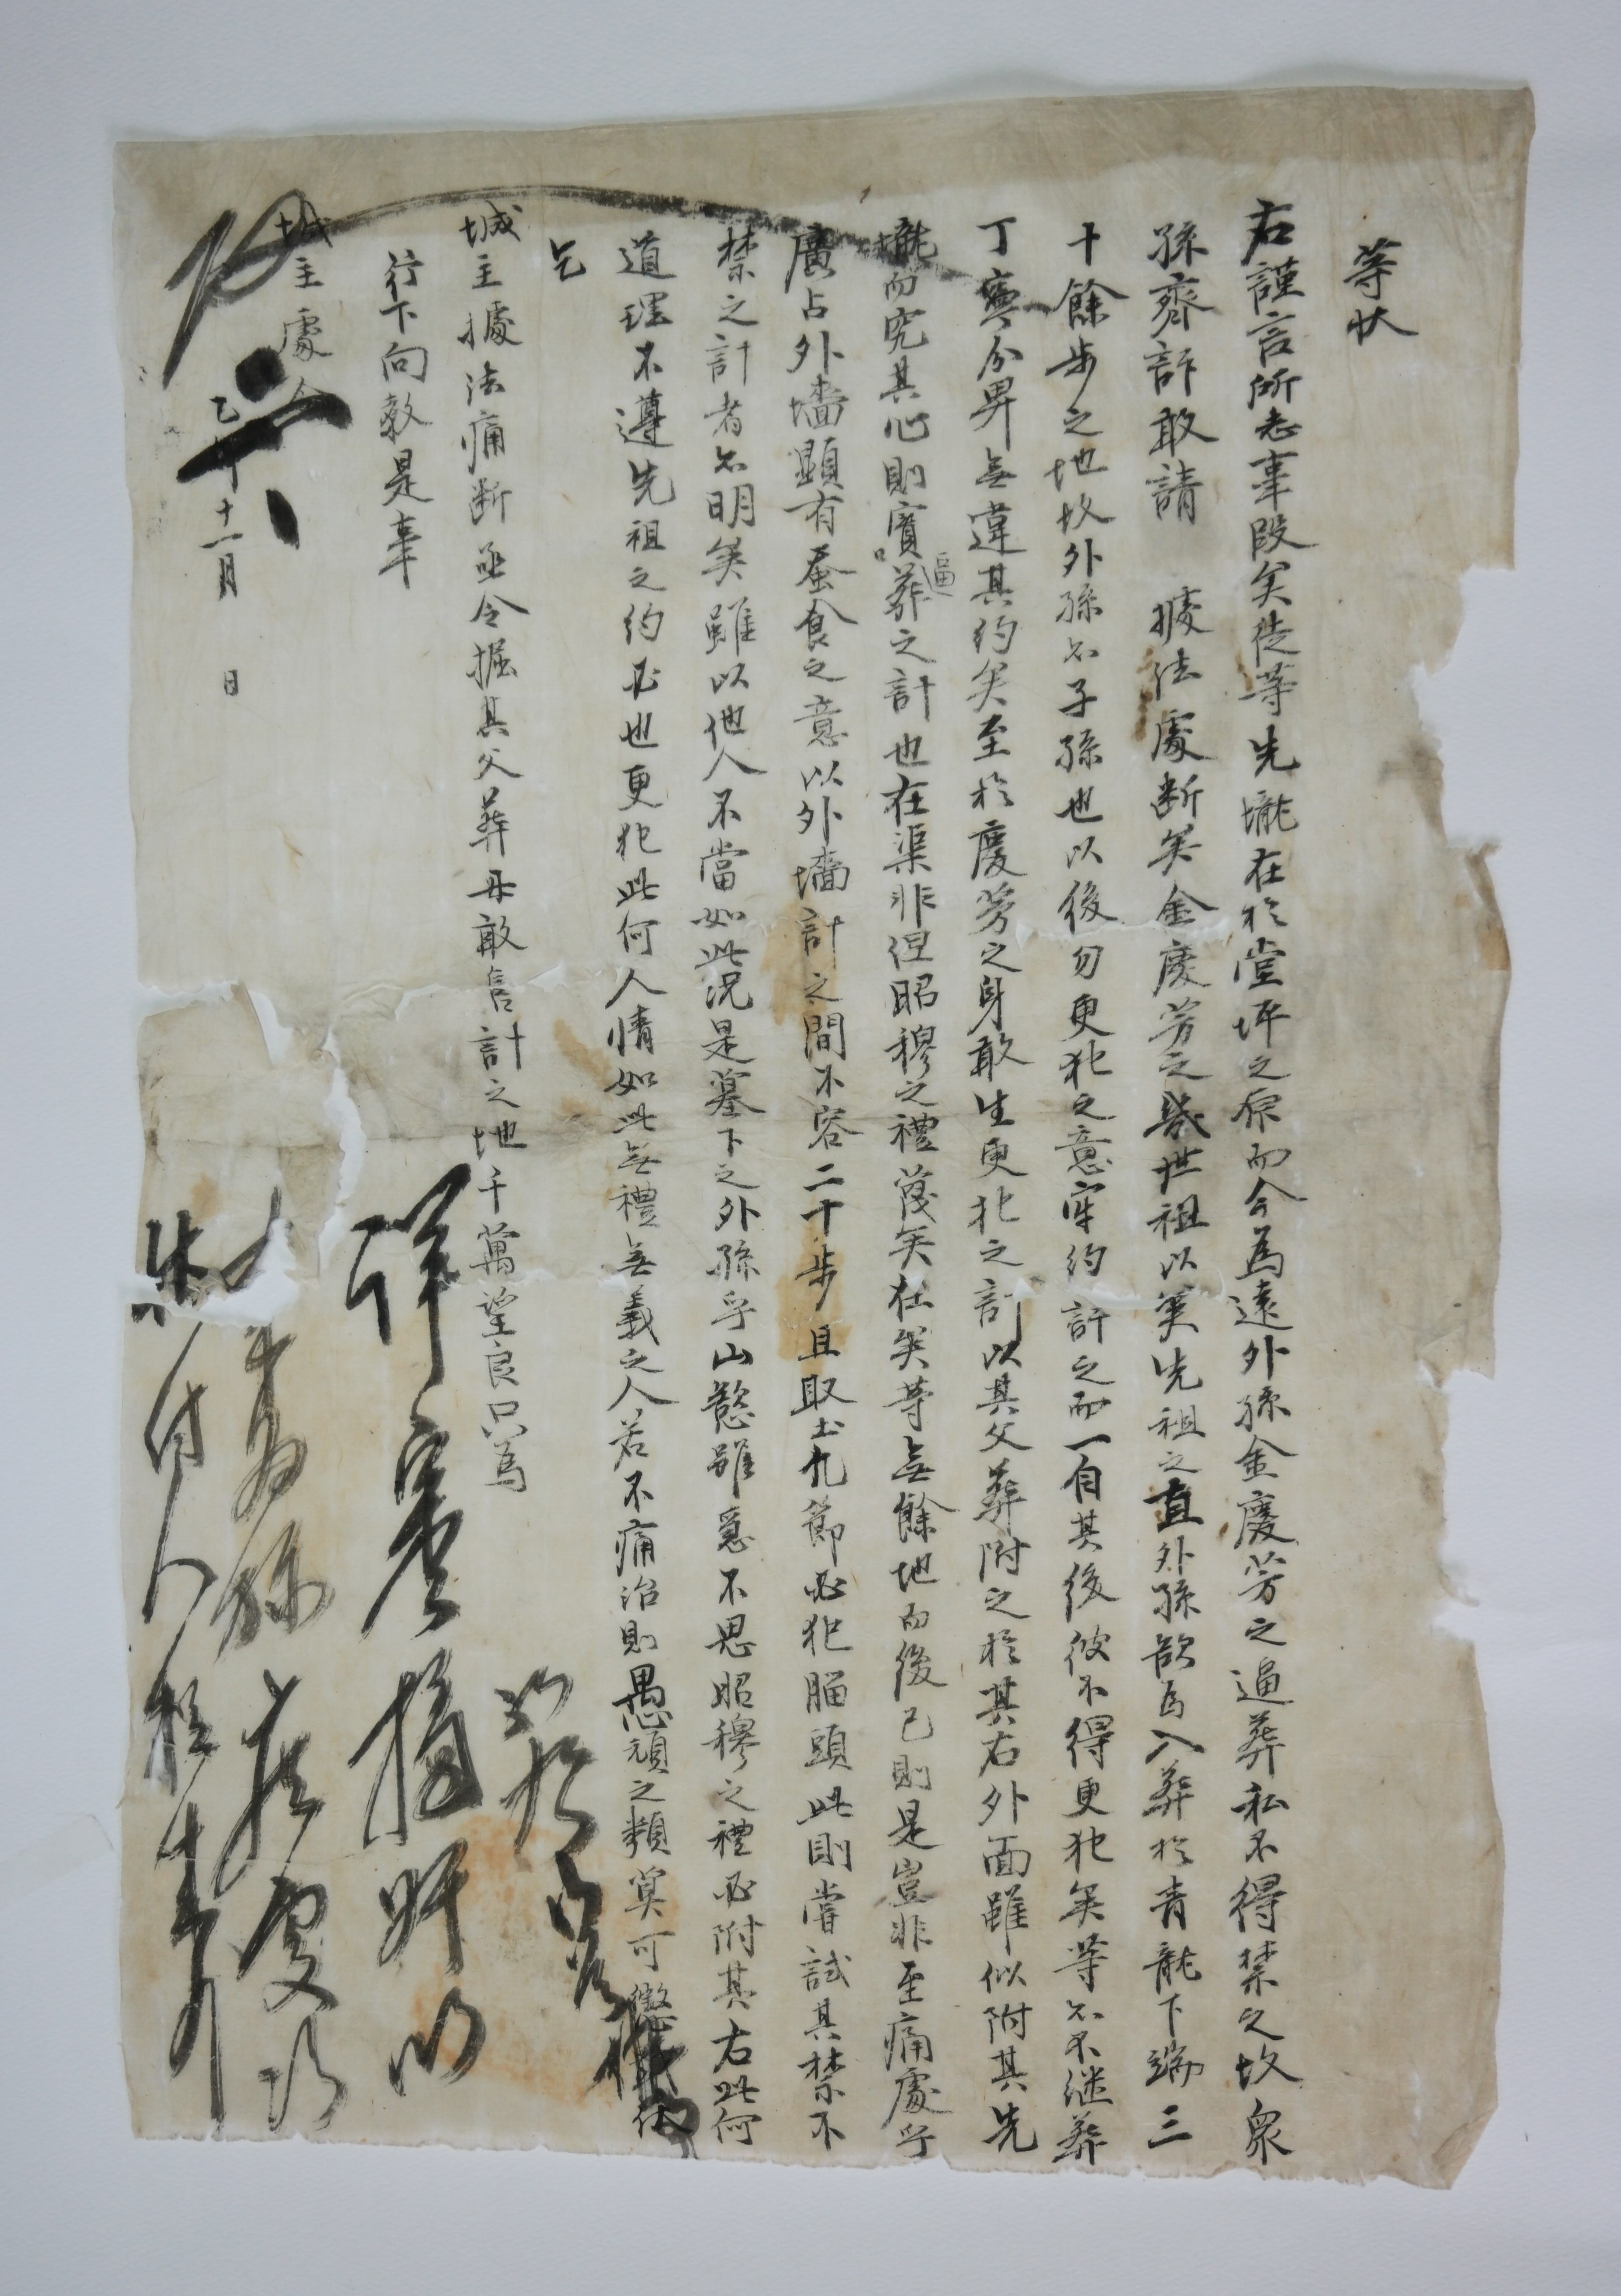 等狀
右謹言所志事段矣徒等先壠在於堂坪之原而今爲遠外孫金慶芳之逼葬私不得禁之故衆
孫齊訴敢請 據法處断矣金慶芳之幾世祖以矣先祖之直外孫欲爲入葬於青龍下端三
十餘步之地故外孫亦子孫也以後勿更犯之意牢約許之而一自其後彼不得更犯矣等亦不継葬
丁寧分界無違其約矣至於慶芳之身敢生更犯之計以其父葬附之於其右外面雖似附其先
壠而究其心則實逼葬之計也在渠非但昭穆之禮蔑矣在矣等無餘地而後已則是豈非至痛處乎
廣占外墻顯有蚕食之意以外墻計之間不容二十步且取土凡節必犯腦頭此則嘗試其禁不
禁之計者亦明矣雖以他人不當如此况是墓下之外孫乎山慾雖急不思昭穆之禮必附其右此何
道理不遵先祖之約必也更犯此何人情如此無禮無義之人若不痛治則愚頑之類莫可懲
乞
城主據法痛断亟令掘其父葬毋敢售計之地千萬望良只爲
行下向教是事
城主處
乙 十一月 日
詳 摘奸以